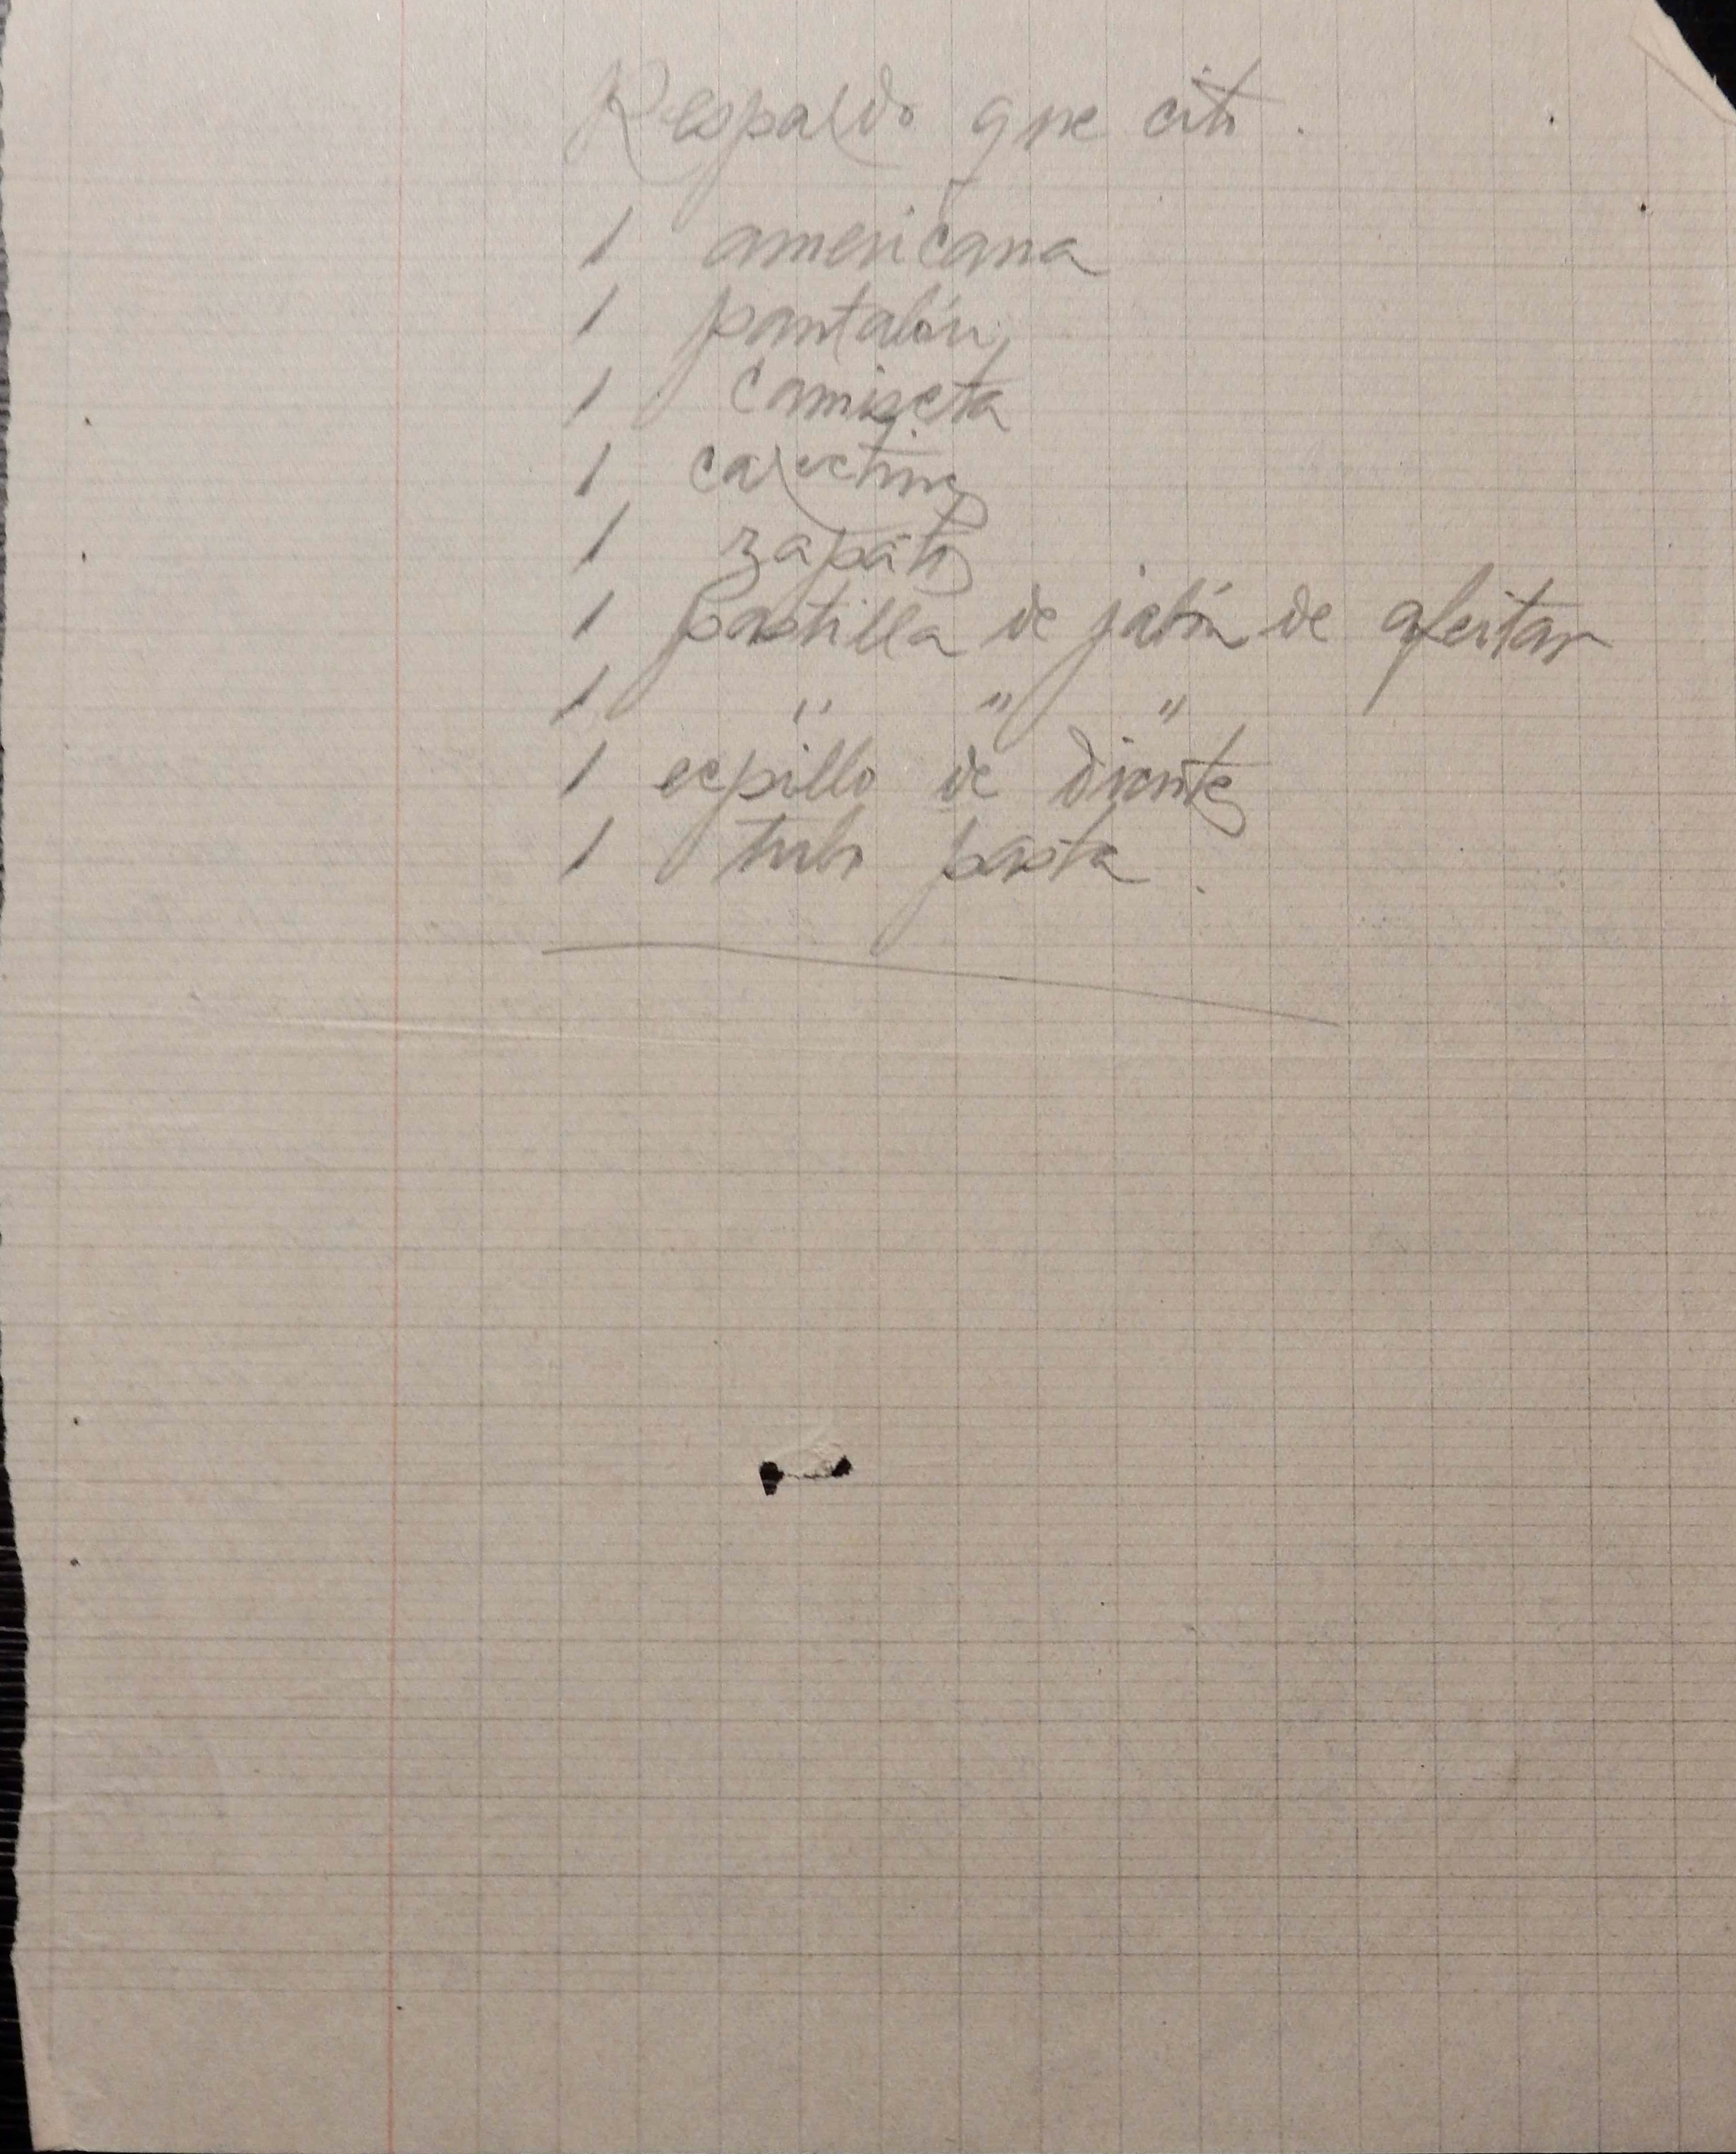 Respaldo que cito.
1 americana
1 pantalón
1 camiseta
1 calcetines
1 zapatos
1 pastilla de jabón de afeitar
1 " " "
1 cepillo de dientes
1 tubo pasta.